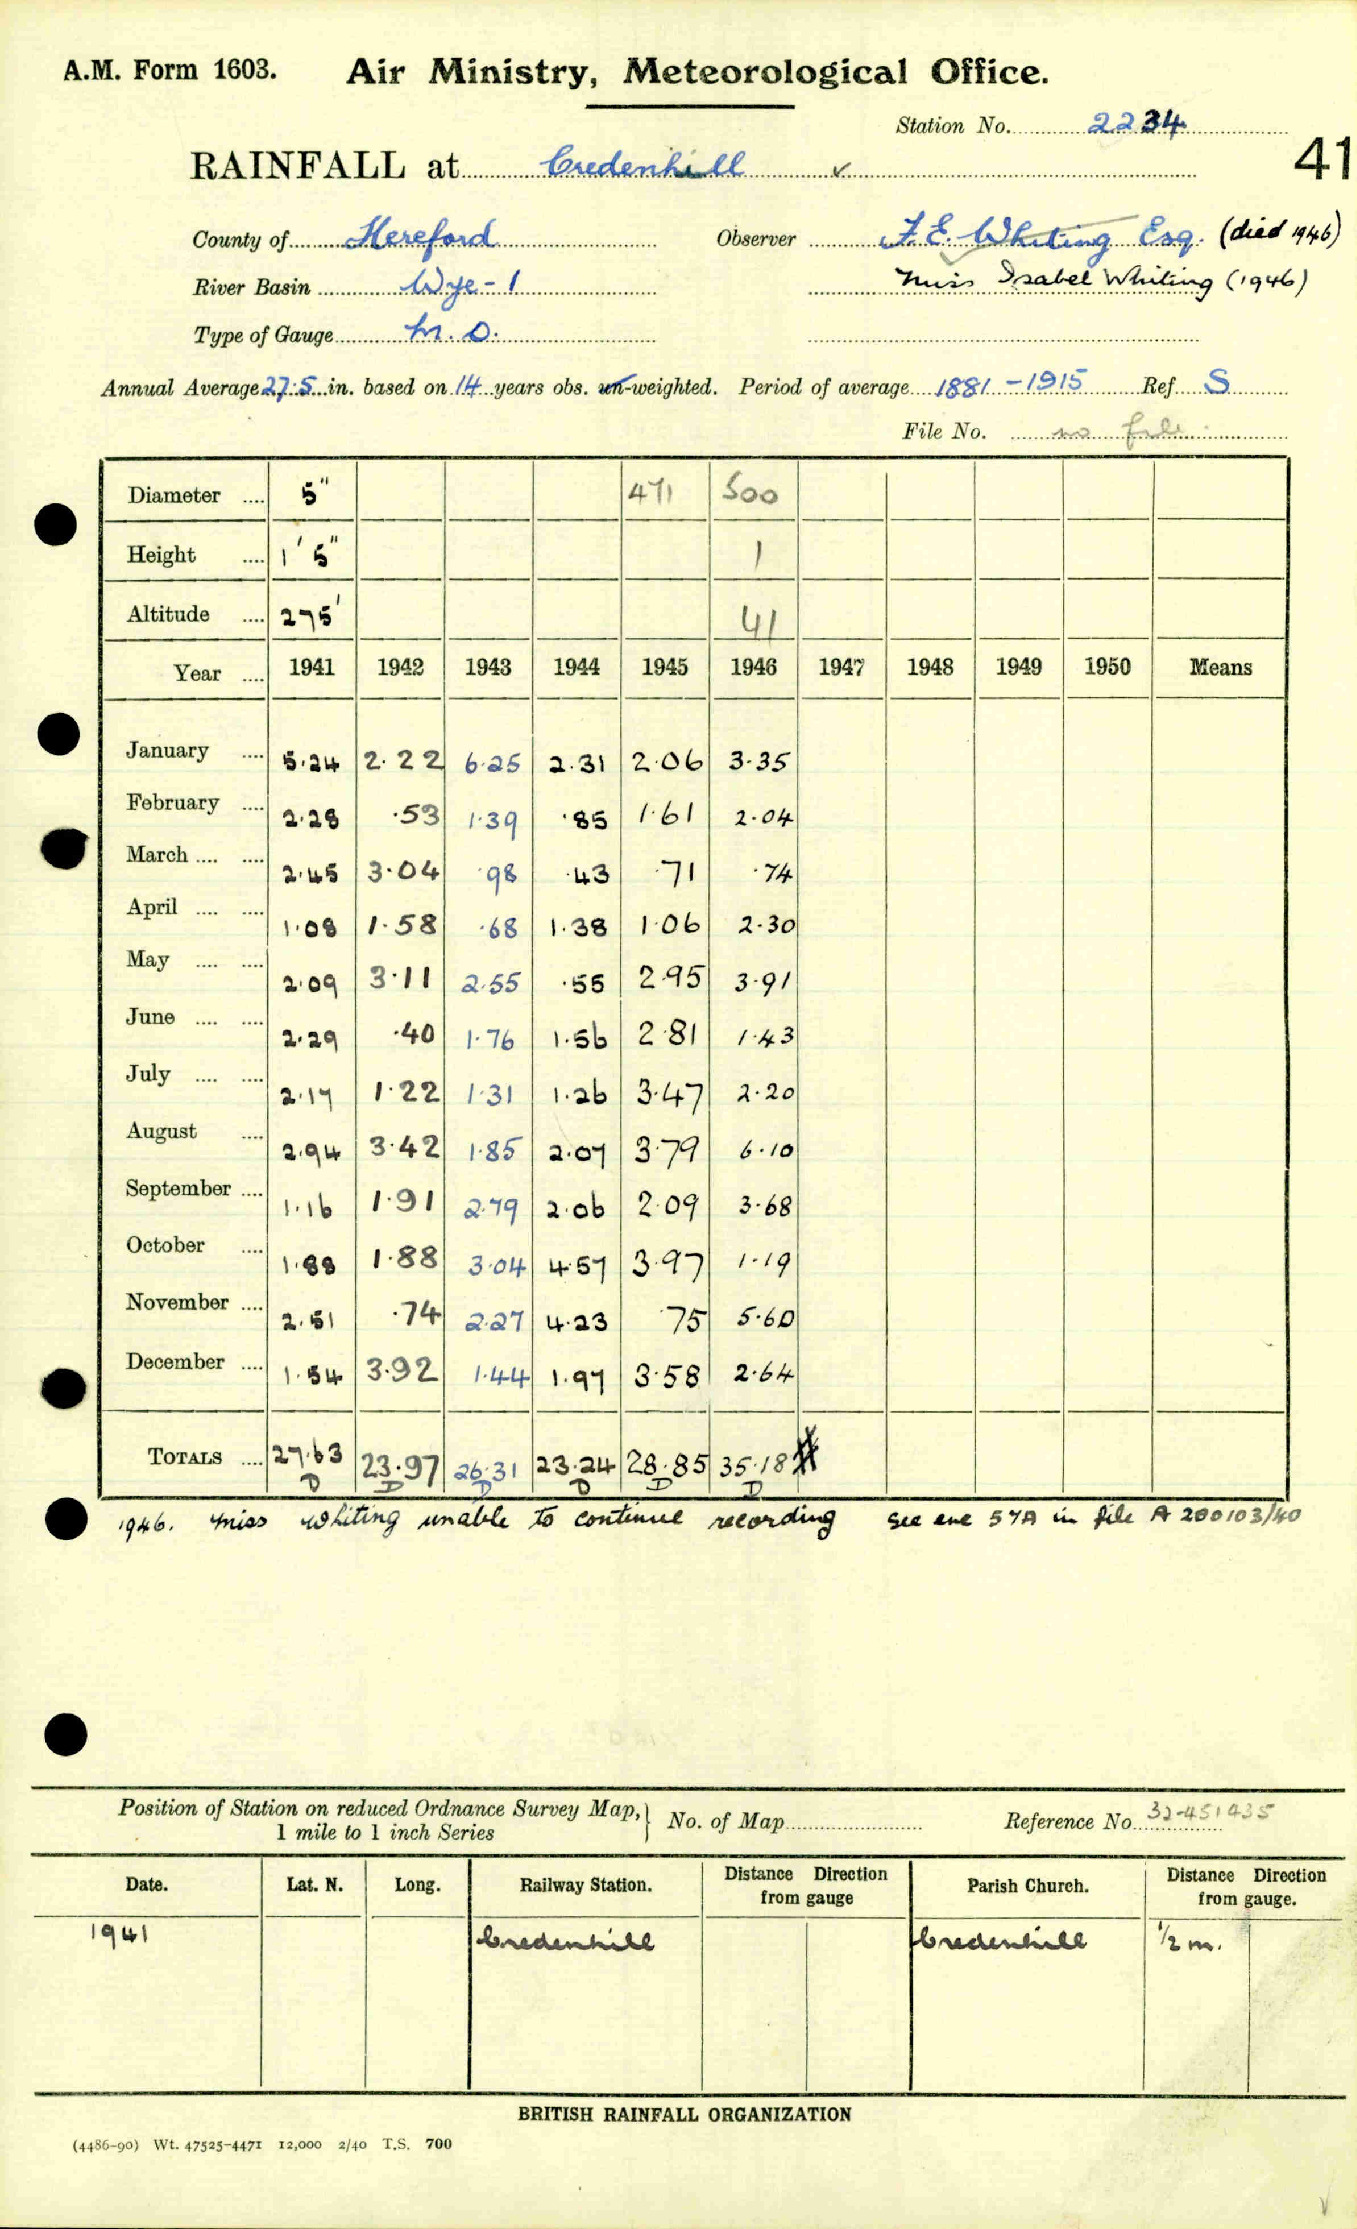 A.M. Form 1603. Air Ministry, Meteorological Office.
Station No. 2234
41
RAINFALL at Credenhill ✓
County of Hereford Observer F.E. Whiting Esq. (died 1946)
River Basin Wye - 1 Miss Isabel Whiting (1946)
Type of Gauge M.O.
Annual Average 27.5 in. based on 14 years obs. un-weighted. Period of average 1881 - 1915 Ref S
File No. no file.
Diameter .... 5" 471 500
Height .... 1' 5" 1
Altitude .... 275' 41
Year .... 1941 1942 1943 1944 1945 1946 1947 1948 1949 1950 Means
January .... 5.24 2.22 6.25 2.31 2.06 3.35
February .... 2.28 .53 1.39 .85 1.61 2.04
March .... .... 2.45 3.04 .98 .43 .71 .74
April .... .... 1.08 1.58 .68 1.38 1.06 2.30
May .... .... 2.09 3.11 2.55 .55 2.95 3.91
June .... .... 2.29 .40 1.76 1.56 2.81 1.43
July .... .... 2.17 1.22 1.31 1.26 3.47 2.20
August .... 2.94 3.42 1.85 2.07 3.79 6.10
September .... 1.16 1.91 2.79 2.06 2.09 3.68
October .... 1.88 1.88 3.04 4.57 3.97 1.19
November .... 2.51 .74 2.27 4.23 .75 5.60
December .... 1.54 3.92 1.44 1.97 3.58 2.64
TOTALS .... 27.63 23.97 26.31 23.24 28.85 35.18
D D D D D D
1946. Miss Whiting unable to continue recording see enc 57A in file A 200103/40
Position of Station on reduced Ordnance Survey Map, No. of Map Reference No. 32-451435
1 mile to 1 inch Series
Date. Lat. N. Long. Railway Station. Distance Direction from gauge Parish Church. Distance Direction from gauge.
1941 Credenhill Credenhill ½ m.
BRITISH RAINFALL ORGANIZATION
(4486-90) Wt. 47525-4471 12,000 2/40 T.S. 700